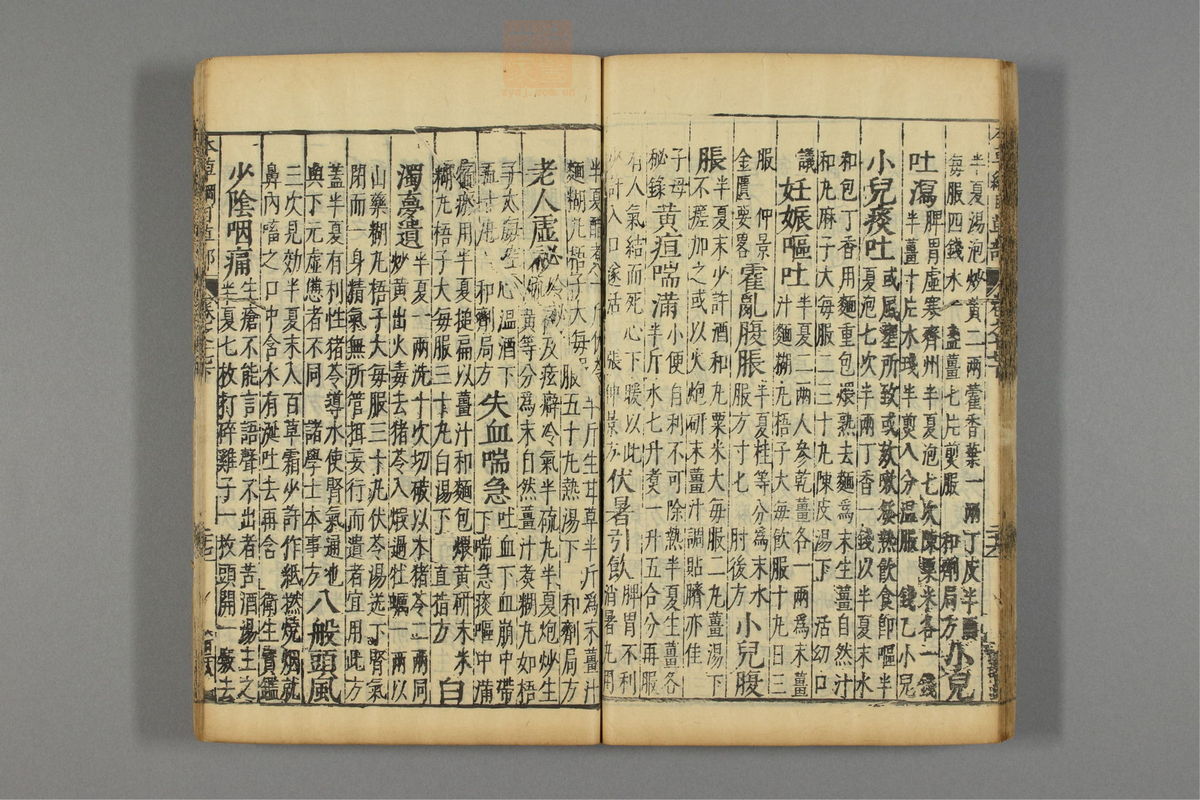 半夏湯泡炒黃二兩藿香葉一兩丁皮半兩
每服四錢水一盞薑七片煎服 和劑局方小兒
吐瀉脾胃虛寒齊州半夏泡七次陳粟米各一錢
半薑十片水盞半煎八分溫服 錢乙小兒
小兒痰吐或風壅所致或欬嗽發熱飲食即嘔半
夏泡七次半兩丁香一錢以半夏末水
和包丁香用麵重包煨熟去麵為末生薑自然汁
和丸麻子大每服二三十丸陳皮湯下 活幼口
議妊娠嘔吐半夏二兩人參乾薑各一兩為末薑
汁麵糊為丸梧子大每飲服十丸日三
服 仲景
金匱要畧霍亂腹脹半夏桂等分為末水
服方寸七 肘後方小兒腹
脹半夏末少許酒和丸粟米大每服二丸薑湯下
不瘥加之或以火炮研末薑汁調貼臍亦佳
子母
秘錄黃疸喘滿小便自利不可除熱半夏生薑各
半斤水七升煮一升五合分再服
有人氣結而死心下暖以此
少許入口遂活 張仲景方伏暑引飲脾胃不利
消暑丸用
半夏醋煮一斤茯苓半斤生甘草半斤為末薑汁
麵糊丸梧子大每服五十丸熱湯下 和劑局方
老人虛秘冷秘及痃癖冷氣半硫丸半夏炮炒生
硫黃等分為末自然薑汁煮糊丸如梧
子大每空心溫酒下
五十丸 和劑局方失血喘急吐血下血崩中帶
下喘急痰嘔中滿
宿瘀用半夏搥扁以薑汁和麵包煨黃研末米
糊丸梧子大每服三十丸白湯下 直指方白
濁夢遺半夏一兩洗十次切破以木猪苓二兩同
炒黃出火毒去猪苓入煆過牡蠣一兩以
山藥糊丸梧子大每服三十丸茯苓湯送下腎氣
閉而一身精氣無所管攝妄行而遺者宜用此方
蓋半夏有利性猪苓導水使腎氣通也
與下元虛憊者不同 諸學士本事方八般頭風
三次見効半夏末入百草霜少許作紙撚燒烟就
鼻內嗃之口中含水有涎吐去再含 衛生寶鑑
少陰咽痛生瘡不能言語聲不出者苦酒湯主之
半夏七枚打碎雞子一枚頭開一竅去